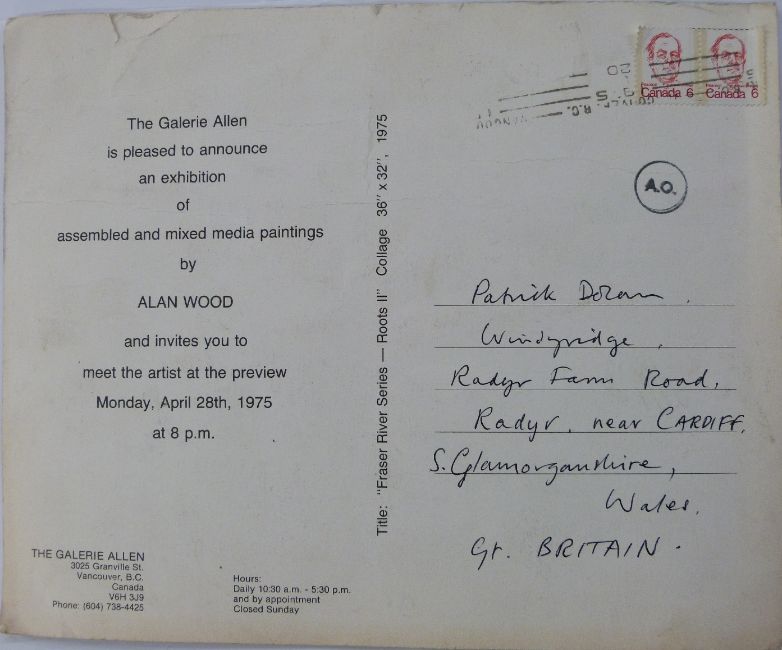 The Galerie Allen
is pleased to announce
an exhibition
of
assembled and mixed media paintings
by
ALAN WOOD
and invites you to
meet the artist at the preview
Monday, April 28th, 1975
at 8 p.m.
THE GALERIE ALLEN
3025 Granville St.
Vancouver, B.C.
Canada
V6H 3J9
Phone: (604) 738-4425
Hours:
Daily 10:30 a.m. - 5:30 p.m.
and by appointment
Closed Sunday
Title: "Fraser River Series — Roots II" Collage 36" x 32", 1975
Canada 6
Canada 6
A.O.
Patrick Dolan.
Windyridge,
Radyr Farm Road,
Radyr, near CARDIFF,
S. Glamorganshire,
Wales.
Gt. BRITAIN.